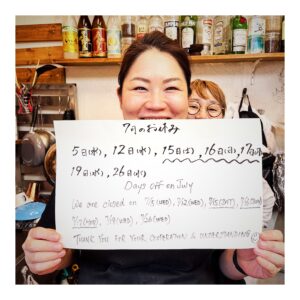 7月のお休み
5日(水), 12日(水), 15日(土), 16日(日), 17日(月)
19日(水), 26日(水)
Days off on July
We are closed on 7/5(WED), 7/12(WED), 7/15(SAT), 7/16(SUN)
7/17(MON), 7/19(WED), 7/26(WED)
THANK YOU FOR YOUR COOPERATION & UNDERSTANDING